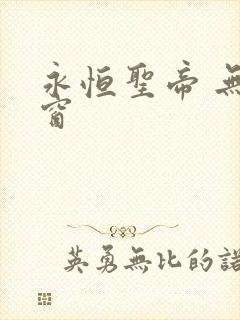 永恒聖帝 無
窗
英勇無比的諾